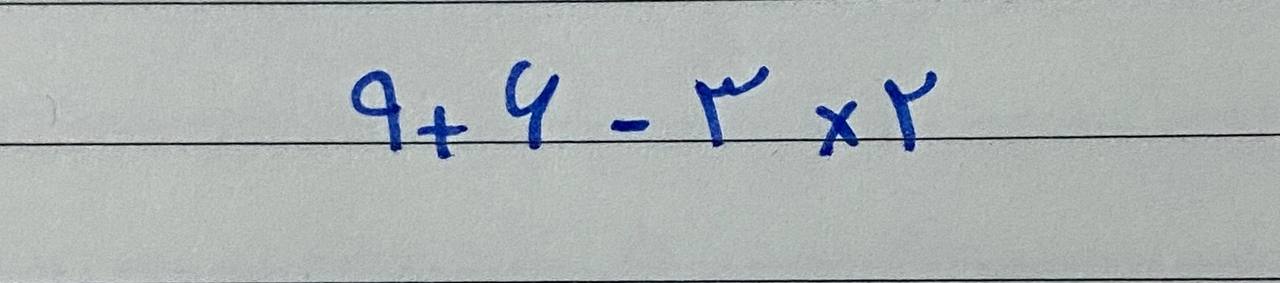 ۹+۶-۳×۲